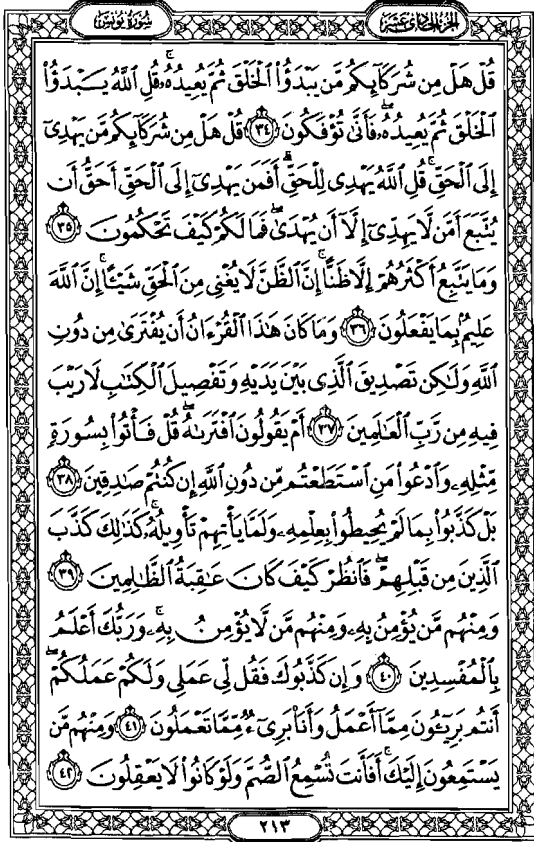 سُورَةُ يُونُسَ
الجُزءُ الحَادِي عَشَرَ
قُلْ هَلْ مِن شُرَكَآئِكُم مَّن يَبْدَؤُا۟ ٱلْخَلْقَ ثُمَّ يُعِيدُهُۥۚ قُلِ ٱللَّهُ يَبْدَؤُا۟
ٱلْخَلْقَ ثُمَّ يُعِيدُهُۥۖ فَأَنَّىٰ تُؤْفَكُونَ ٣٤ قُلْ هَلْ مِن شُرَكَآئِكُم مَّن يَهْدِىٓ
إِلَى ٱلْحَقِّۚ قُلِ ٱللَّهُ يَهْدِى لِلْحَقِّۗ أَفَمَن يَهْدِىٓ إِلَى ٱلْحَقِّ أَحَقُّ أَن
يُتَّبَعَ أَمَّن لَّا يَهِدِّىٓ إِلَّآ أَن يُهْدَىٰۖ فَمَا لَكُمْ كَيْفَ تَحْكُمُونَ ٣٥
وَمَا يَتَّبِعُ أَكْثَرُهُمْ إِلَّا ظَنًّاۚ إِنَّ ٱلظَّنَّ لَا يُغْنِى مِنَ ٱلْحَقِّ شَيْـًٔاۚ إِنَّ ٱللَّهَ
عَلِيمٌۢ بِمَا يَفْعَلُونَ ٣٦ وَمَا كَانَ هَٰذَا ٱلْقُرْءَانُ أَن يُفْتَرَىٰ مِن دُونِ
ٱللَّهِ وَلَٰكِن تَصْدِيقَ ٱلَّذِى بَيْنَ يَدَيْهِ وَتَفْصِيلَ ٱلْكِتَٰبِ لَا رَيْبَ
فِيهِ مِن رَّبِّ ٱلْعَٰلَمِينَ ٣٧ أَمْ يَقُولُونَ ٱفْتَرَىٰهُۖ قُلْ فَأْتُوا۟ بِسُورَةٍ
مِّثْلِهِۦ وَٱدْعُوا۟ مَنِ ٱسْتَطَعْتُم مِّن دُونِ ٱللَّهِ إِن كُنتُمْ صَٰدِقِينَ ٣٨
بَلْ كَذَّبُوا۟ بِمَا لَمْ يُحِيطُوا۟ بِعِلْمِهِۦ وَلَمَّا يَأْتِهِمْ تَأْوِيلُهُۥۚ كَذَٰلِكَ كَذَّبَ
ٱلَّذِينَ مِن قَبْلِهِمْۖ فَٱنظُرْ كَيْفَ كَانَ عَٰقِبَةُ ٱلظَّٰلِمِينَ ٣٩
وَمِنْهُم مَّن يُؤْمِنُ بِهِۦ وَمِنْهُم مَّن لَّا يُؤْمِنُ بِهِۦۚ وَرَبُّكَ أَعْلَمُ
بِٱلْمُفْسِدِينَ ٤٠ وَإِن كَذَّبُوكَ فَقُل لِّى عَمَلِى وَلَكُمْ عَمَلُكُمْۖ
أَنتُم بَرِيٓـُٔونَ مِمَّآ أَعْمَلُ وَأَنَا۠ بَرِىٓءٌ مِّمَّا تَعْمَلُونَ ٤١ وَمِنْهُم مَّن
يَسْتَمِعُونَ إِلَيْكَۚ أَفَأَنتَ تُسْمِعُ ٱلصُّمَّ وَلَوْ كَانُوا۟ لَا يَعْقِلُونَ ٤٢
٢١٣